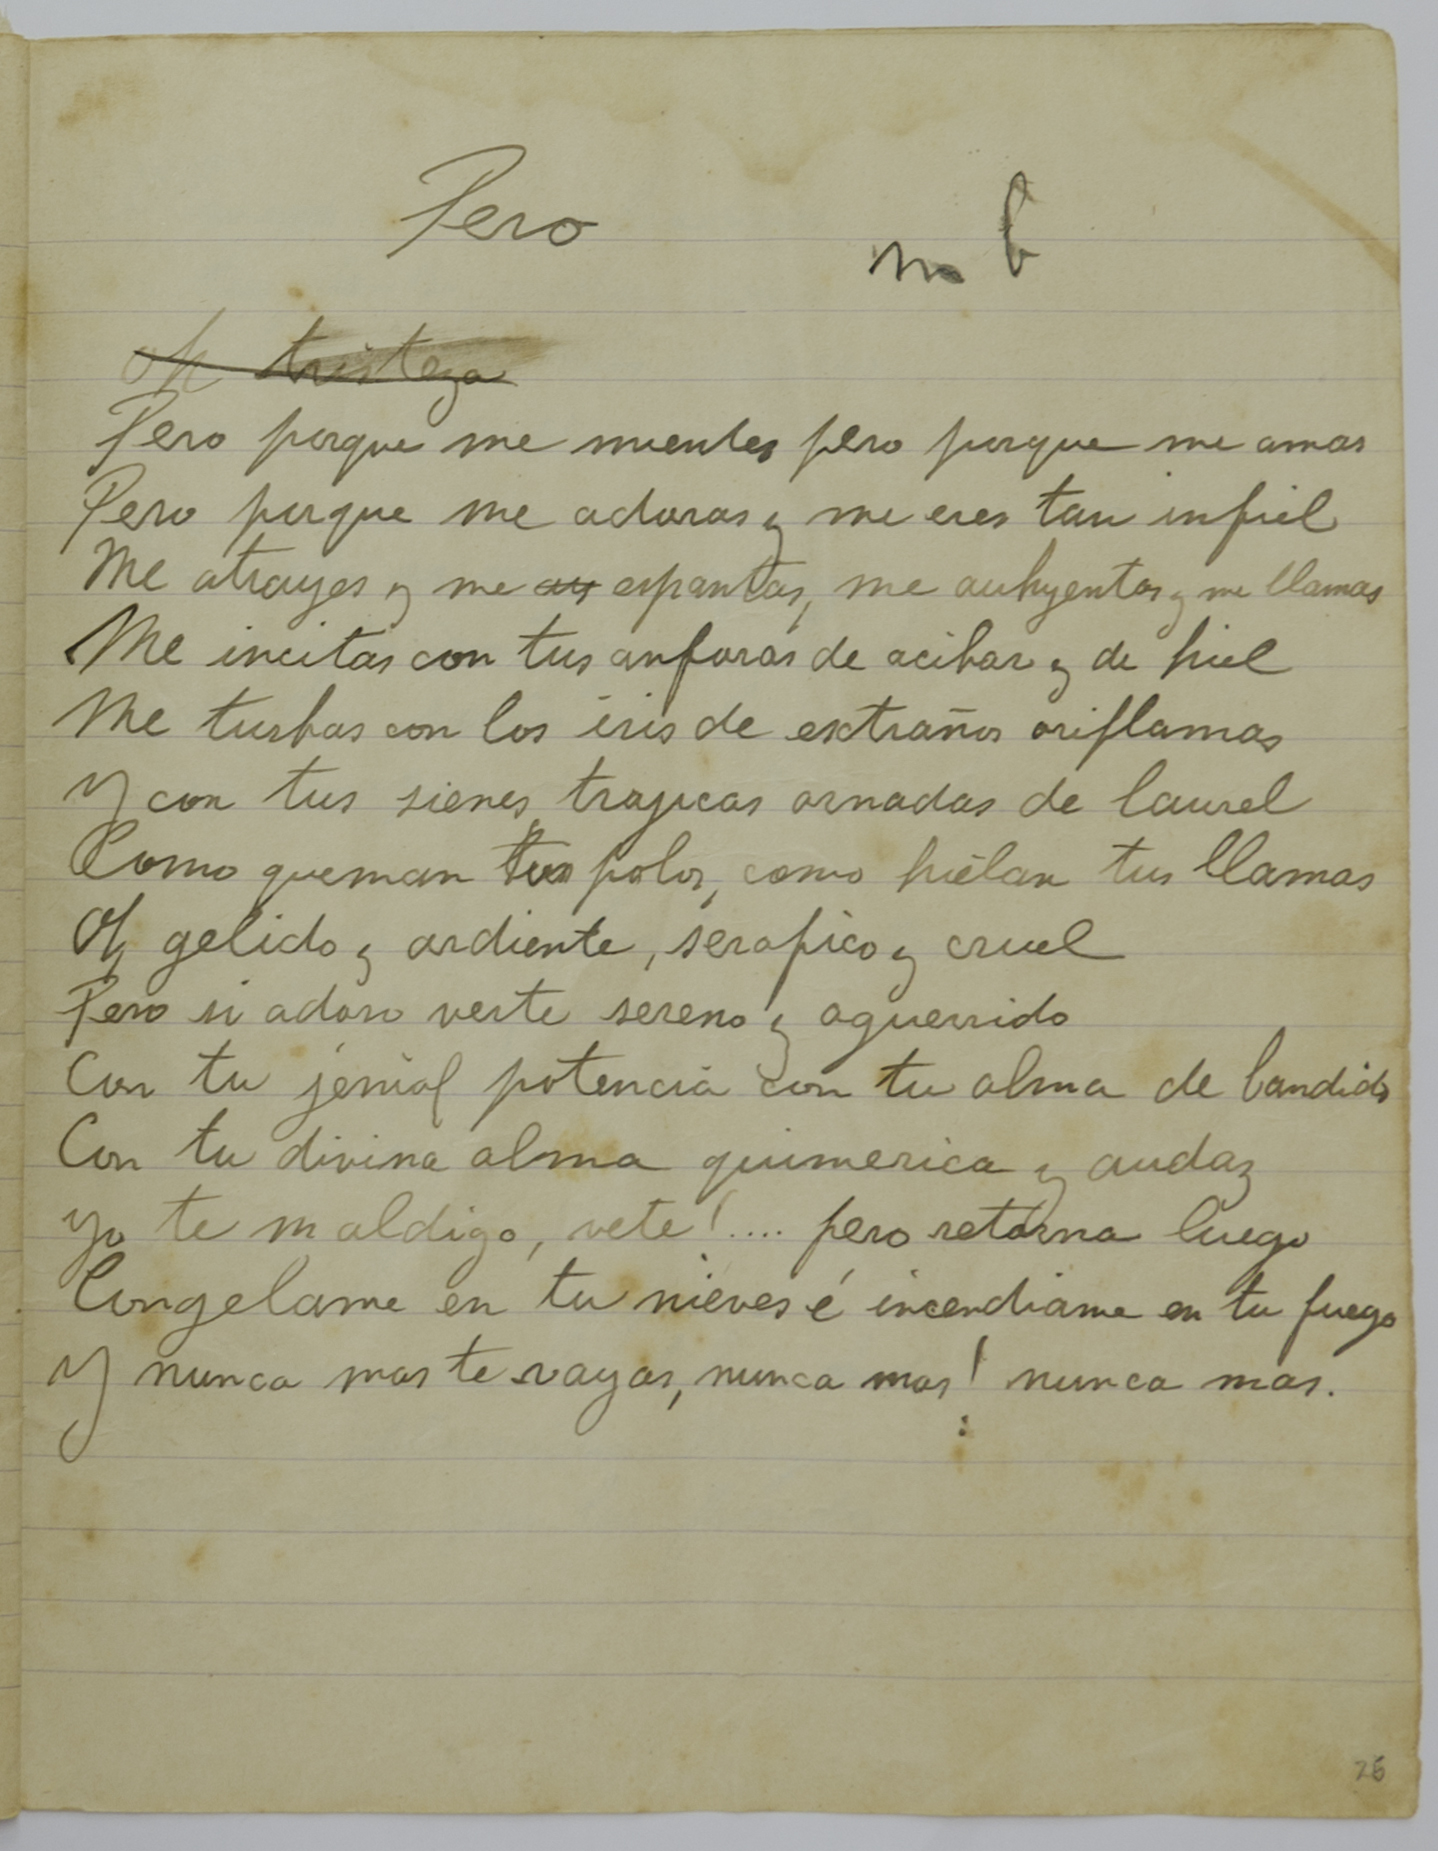 Pero
no b
oh tristeza
Pero porque me mientes pero porque me amas
Pero porque me adoras y me eres tan infiel
Me atrayes y me espantas, me auhyentas y me llamas
Me incitas con tus anforas de acibar y de hiel
Me turbas con los iris de extraños oriflamas
Y con tus sienes trajicas ornadas de laurel
Como queman tus polos, como hielan tus llamas
Oh gelido y ardiente, serafico y cruel
Pero si adoro verte sereno y aguerrido
Con tu jenial potencia con tu alma de bandido
Con tu divina alma quimerica y audaz
Yo te maldigo, vete! .... pero retorna luego
Congelame en tu nieves é incendiame en tu fuego
Y nunca mas te vayas, nunca mas! nunca mas.
26